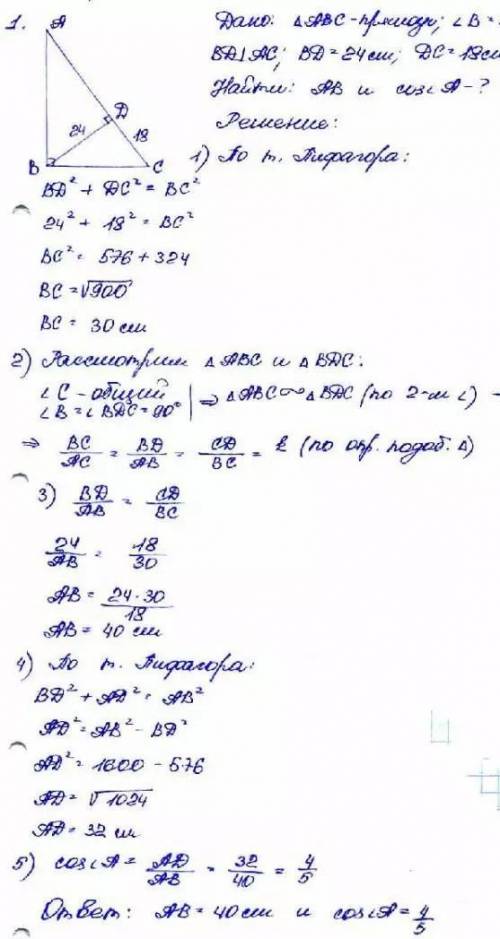 1.
A
D
24
18
B
C
Дано: △ABC - прямоуг; ∠B =
BD⊥AC; BD = 24 см; DC = 18 см
Найти: AB и cos∠A - ?
Решение:
1) По т. Пифагора:
BD² + DC² = BC²
24² + 18² = BC²
BC² = 576 + 324
BC = √900
BC = 30 см
2) Рассмотрим △ABC и △BDC:
∠C - общий
∠B = ∠BDC = 90° | ⇒ △ABC ∾ △BDC (по 2-м ∠)
⇒ BC/AC = BD/AB = CD/BC = k (по опр. подоб. △)
3) BD/AB = CD/BC
24/AB = 18/30
AB = 24·30/18
AB = 40 см
4) По т. Пифагора:
BD² + AD² = AB²
AD² = AB² - BD²
AD² = 1600 - 576
AD = √1024
AD = 32 см
5) cos∠A = AD/AB = 32/40 = 4/5
Ответ: AB = 40 см и cos∠A = 4/5